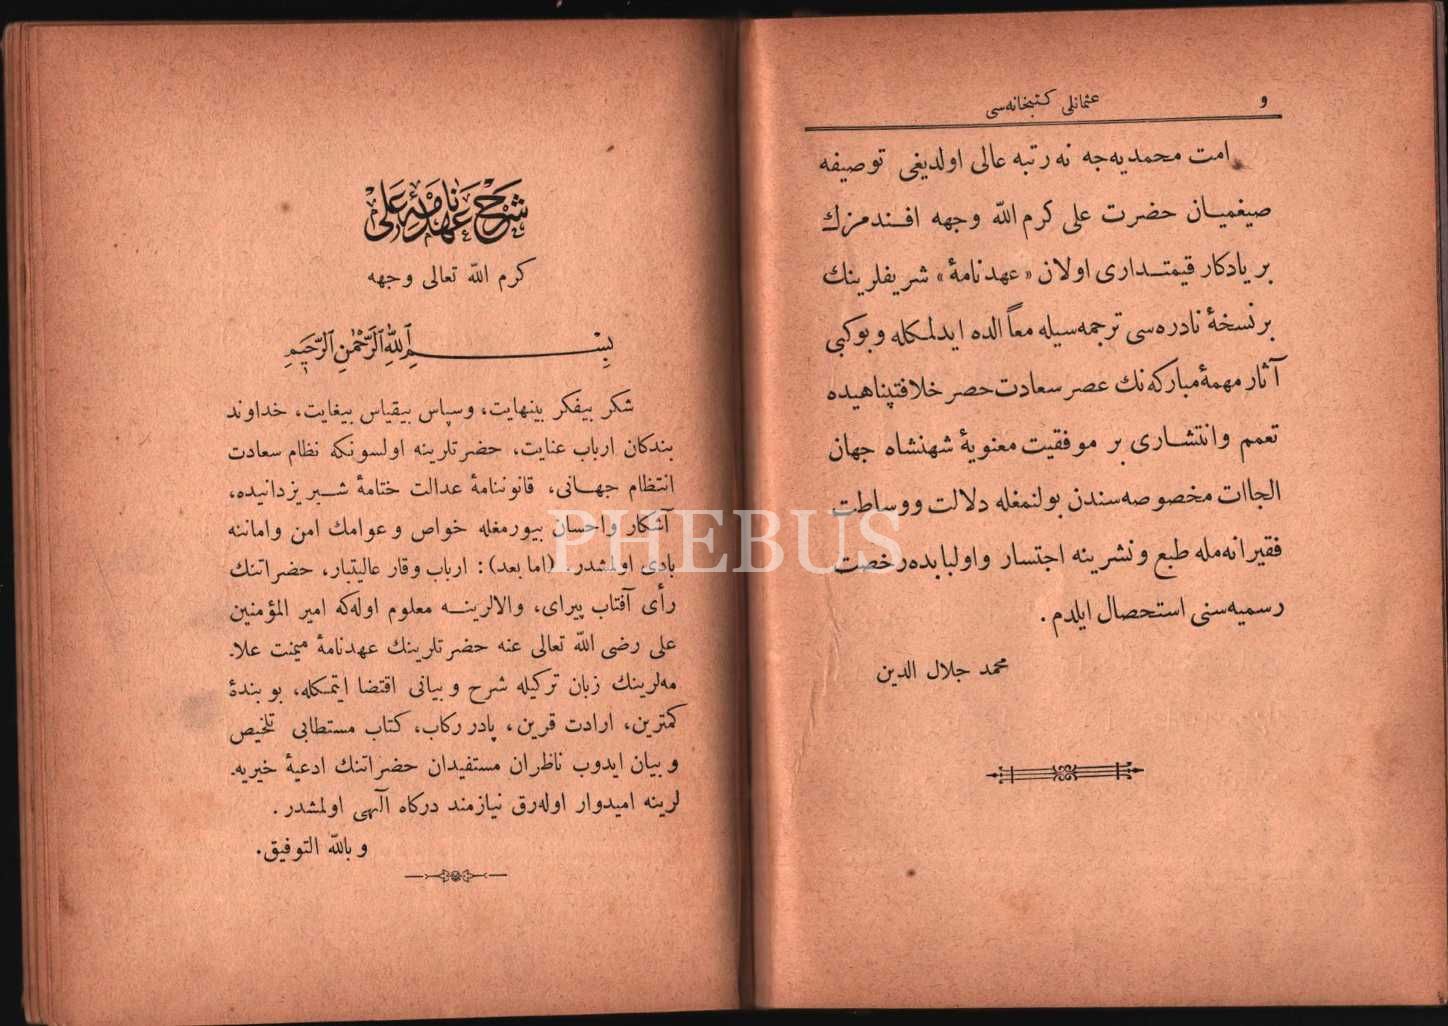 و
عثمانلی كتبخانه‌سی
امت محمدیه‌جه نه رتبه عالی اولدیغی توصیفه
صیغمیان حضرت علی كرم الله وجهه افندمزك
بر یادكار قیمتداری اولان «عهدنامهٔ» شریفلرینك
بر نسخهٔ نادره‌سی ترجمه‌سیله معاً الده ایدلمكله و بوكبی
آثار مهمهٔ مباركه‌نك عصر سعادت‌حصر خلافتپناهیده
تعمم وانتشاری بر موفقیت معنویهٔ شهنشاه جهان
الجاات مخصوصه‌سندن بولنمغله دلالت ووساطت
فقیرانه‌مله طبع ونشرینه اجتسار واولبابده رخصت
رسمیه‌سنی استحصال ایلدم.
محمد جلال الدین
شرح عهدنامهٔ علی
كرم الله تعالی وجهه
بسم الله الرحمن الرحیم
شكر بیفكر بینهایت، وسپاس بیقیاس بیغایت، خداوند
بندكان ارباب عنایت، حضرتلرینه اولسونكه نظام سعادت
انتظام جهانی، قانوننامهٔ عدالت ختامهٔ شبر یزدانیده،
آشكار واحسان بیورمغله خواص و عوامك امن واماننه
بادی اولمشدر. (اما بعد): ارباب وقار عالیتبار، حضراتنك
رأی آفتاب پیرای، والالرینه معلوم اوله‌كه امیر المؤمنین
علی رضی الله تعالی عنه حضرتلرینك عهدنامهٔ میمنت علا.
مه‌لرینك زبان تركیله شرح و بیانی اقتضا ایتمكله، بو بندهٔ
كمترین، ارادت قرین، پادر ركاب، كتاب مستطابی تلخیص
و بیان ایدوب ناظران مستفیدان حضراتنك ادعیهٔ خیریه.
لرینه امیدوار اوله‌رق نیازمند دركاه آلهی اولمشدر.
و بالله التوفیق.
PHEBUS